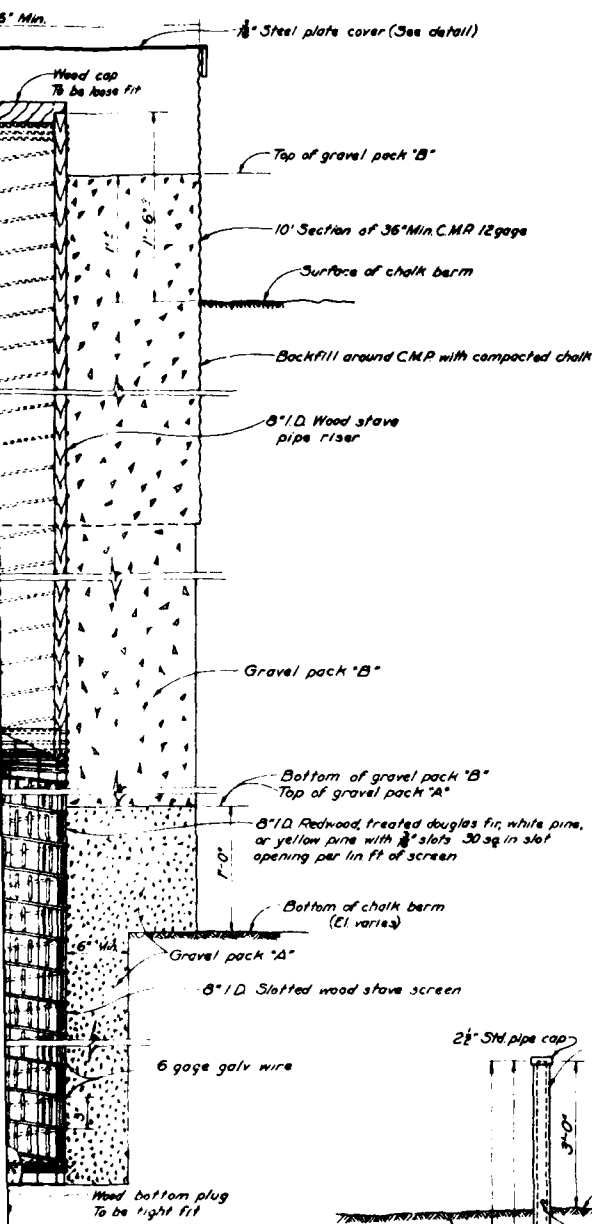 6" Min.
1/8" Steel plate cover (See detail)
Wood cap
To be loose fit
Top of gravel pack "B"
1'-6"
10' Section of 36" Min. C.M.P. 12 gage
Surface of chalk berm
Backfill around C.M.P. with compacted chalk
8" I.D. Wood stave
pipe riser
Gravel pack "B"
Bottom of gravel pack "B"
Top of gravel pack "A"
8" I.D. Redwood, treated douglas fir, white pine,
or yellow pine with slots 30 sq. in slot
opening per lin ft of screen
1'-0"
Bottom of chalk berm
(El. varies)
6" Min.
Gravel pack "A"
8" I.D. Slotted wood stave screen
2½" Std. pipe cap
6 gage galv wire
3"
3'-0"
Wood bottom plug
To be tight fit